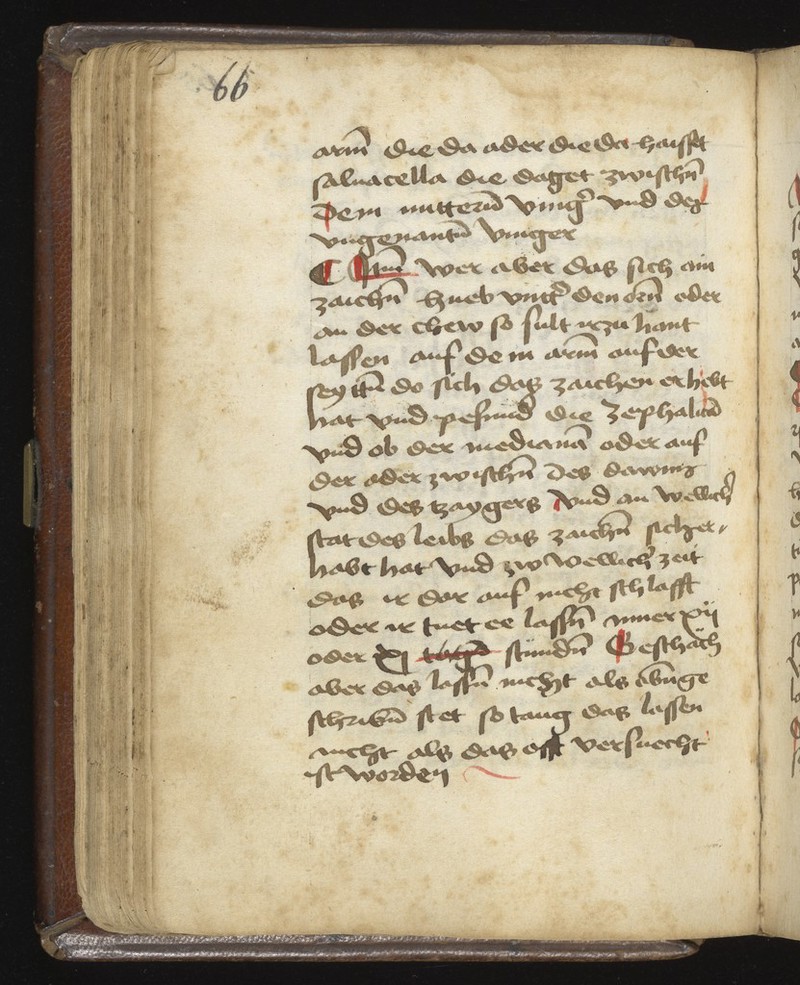 66
arm̄ die da ader die da haisst
saluacella die daget zwischn̄
Dem mitterñ vinger̉ vnd der
vngenantñ vinger
¶ Item wer aber das sich ain
zaichn̄ hueb vntter̉ den orn̄ oder
an der chew so sult ir zu hant
lassen auf dem arm̄ auf der
seyttñ do sich das zaichen erhebt
hat vnd pesund̄ die Zephalicā
vnd ob der medianā oder auf
der ader zwischn̄ des dawms
vnd des tzaygers vnd an wellich̉
stat des leibs das zaichn̄ sich er-
habt hat vnd zw wellich̉ zeit
das ir dar auf nicht schlafft
oder ir tuet ee lassn̄ inner xij
oder xj stundn̄ Geschäch
aber das lassn̄ nicht als obn̄ge
schribn̄ stet so taug das lassen
nicht als das offt versuecht
ist worden